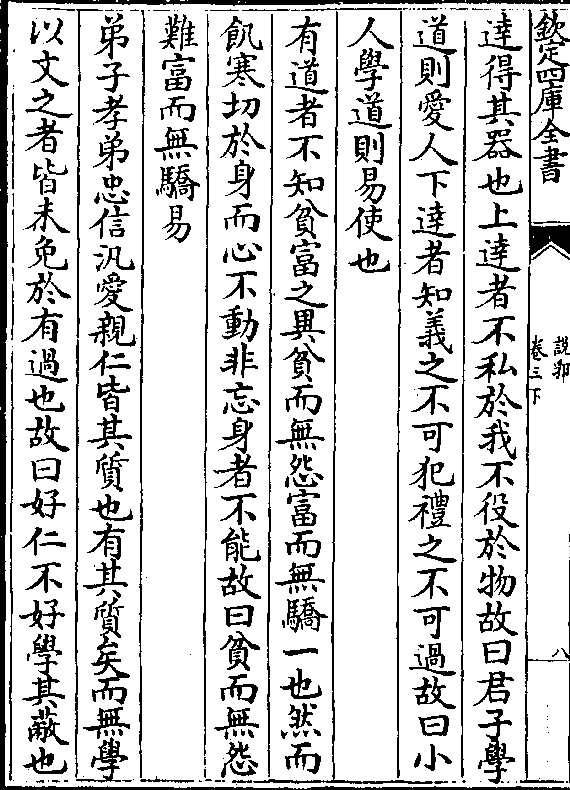 欽定四庫全書
說郛
卷三下
八
達得其器也上達者不私於我不役於物故曰君子學
道則愛人下達者知義之不可犯禮之不可過故曰小
人學道則易使也
有道者不知貧富之異貧而無怨富而無驕一也然而
飢寒切於身而心不動非忘身者不能故曰貧而無怨
難富而無驕易
弟子孝弟忠信汎愛親仁皆其質也有其質矣而無學
以文之者皆未免於有過也故曰好仁不好學其蔽也